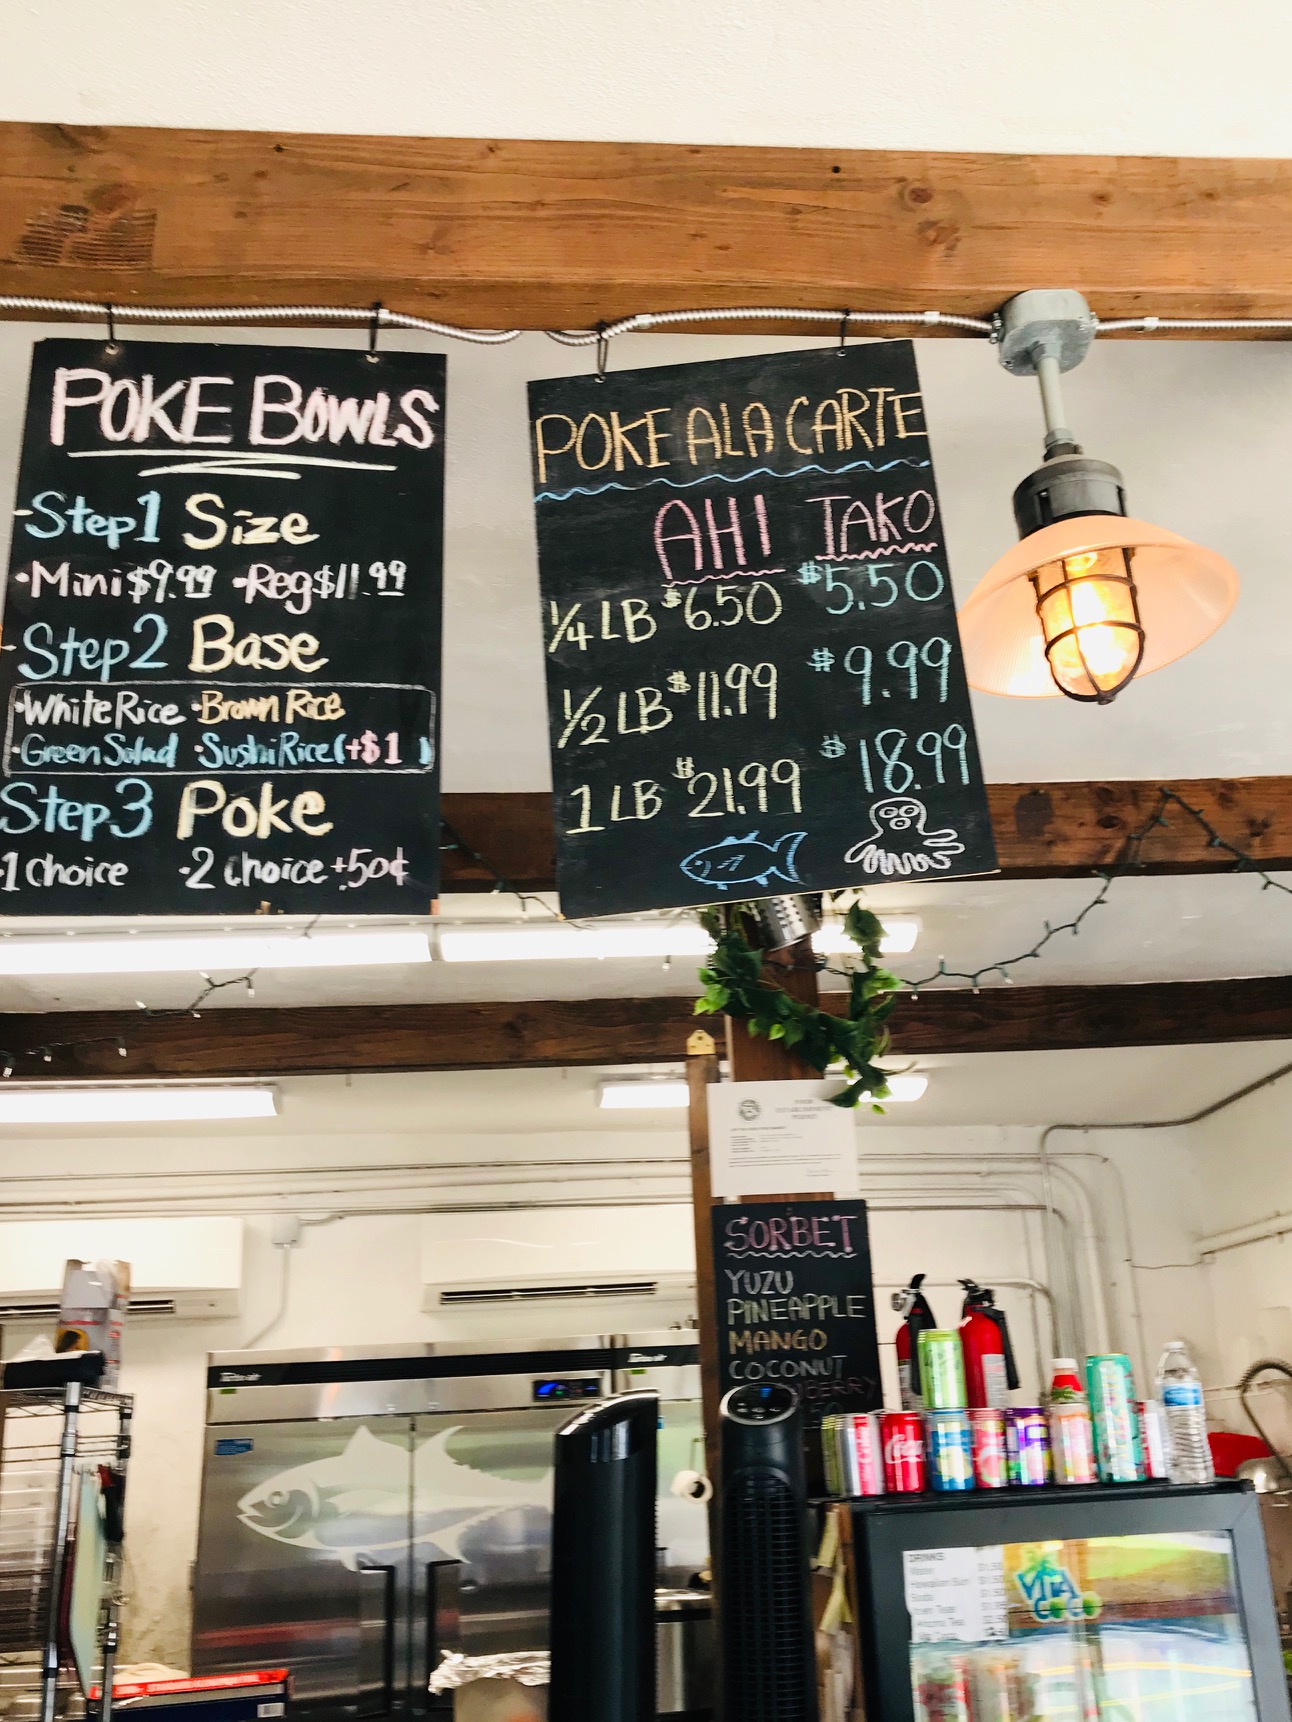 POKE BOWLS
-Step1 Size
·Mini $9.99 ·Reg $11.99
-Step2 Base
·White Rice ·Brown Rice
·Green Salad ·Sushi Rice (+$1)
Step3 Poke
·1 choice ·2 choice +.50¢
POKE ALA CARTE
AHI TAKO
1/4 LB $6.50 $5.50
1/2 LB $11.99 $9.99
1 LB $21.99 $18.99
SORBET
YUZU
PINEAPPLE
MANGO
COCONUT
True
DRINKS
Water
Hawaiian Sun
Soda
VITA
COCO